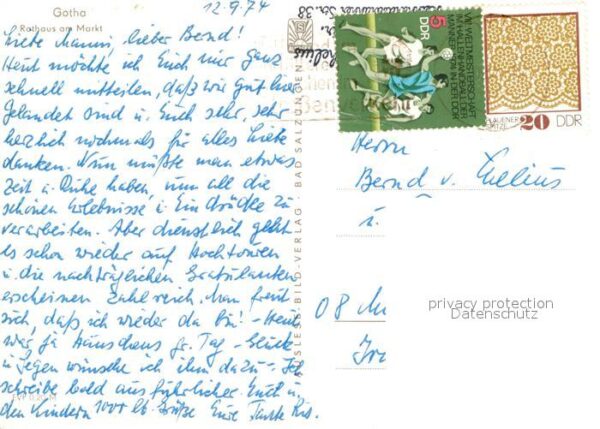 Gotha
Rathaus am Markt
12.9.74
Liebe Manni, lieber Bernd!
Heut möchte ich Euch nur ganz
schnell mitteilen, daß wir gut hier
gelandet sind u. Euch sehr, sehr
herzlich nochmals für alles Liebe
danken. Nun müßte man etwas
Zeit u. Ruhe haben, um all die
schönen Erlebnisse u. Eindrücke zu
verarbeiten. Aber dienstlich geht
es schon wieder auf Hochtouren
u. die nachträglichen Gratulanten
erscheinen zahlreich. Man freut
sich, daß ich wieder da bin! - Heut
war ja Hänschens gr. Tag - Glück
u. Segen wünsche ich ihm dazu - Ich
schreibe bald ausführlicher. Euch u.
den Kindern 1000 lb. Grüße Eure Tante
BILD-VERLAG · BAD SALZUNGEN
5 DDR
VIII. WELTMEISTERSCHAFT
IM HALLENHANDBALL DER
MÄNNER 1974 IN DER DDR
PLAUENER
SPITZE
20 DDR
Herrn
Bernd v.
u.
08
privacy protection
Datenschutz